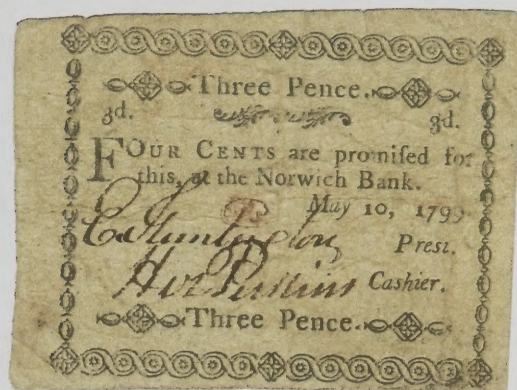 Three Pence.
3d. 3d.
FOUR CENTS are promiſed for
this, at the Norwich Bank.
May 10, 1799
E. Huntington, Presi.
Perkins Cashier.
Three Pence.